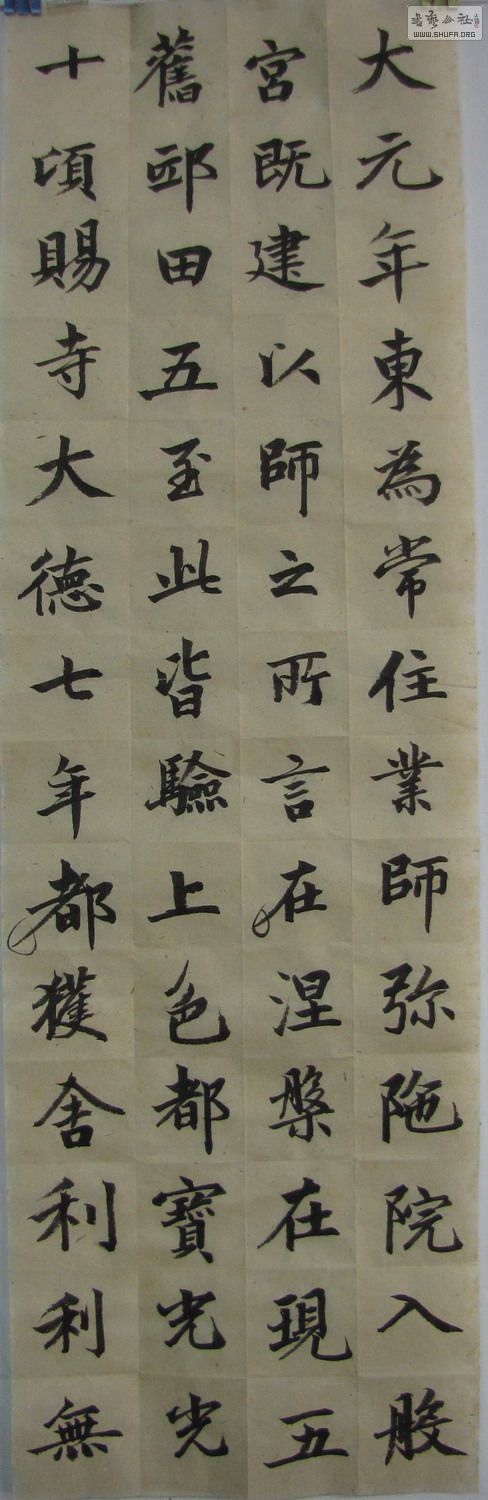 大元年東為常住業師弥陁院入般
宮既建以師之所言在涅槃在現五
舊邸田五至此皆驗上色都寶光光
十頃賜寺大德七年都獲舍利利無
書藝公社
WWW.SHUFA.ORG